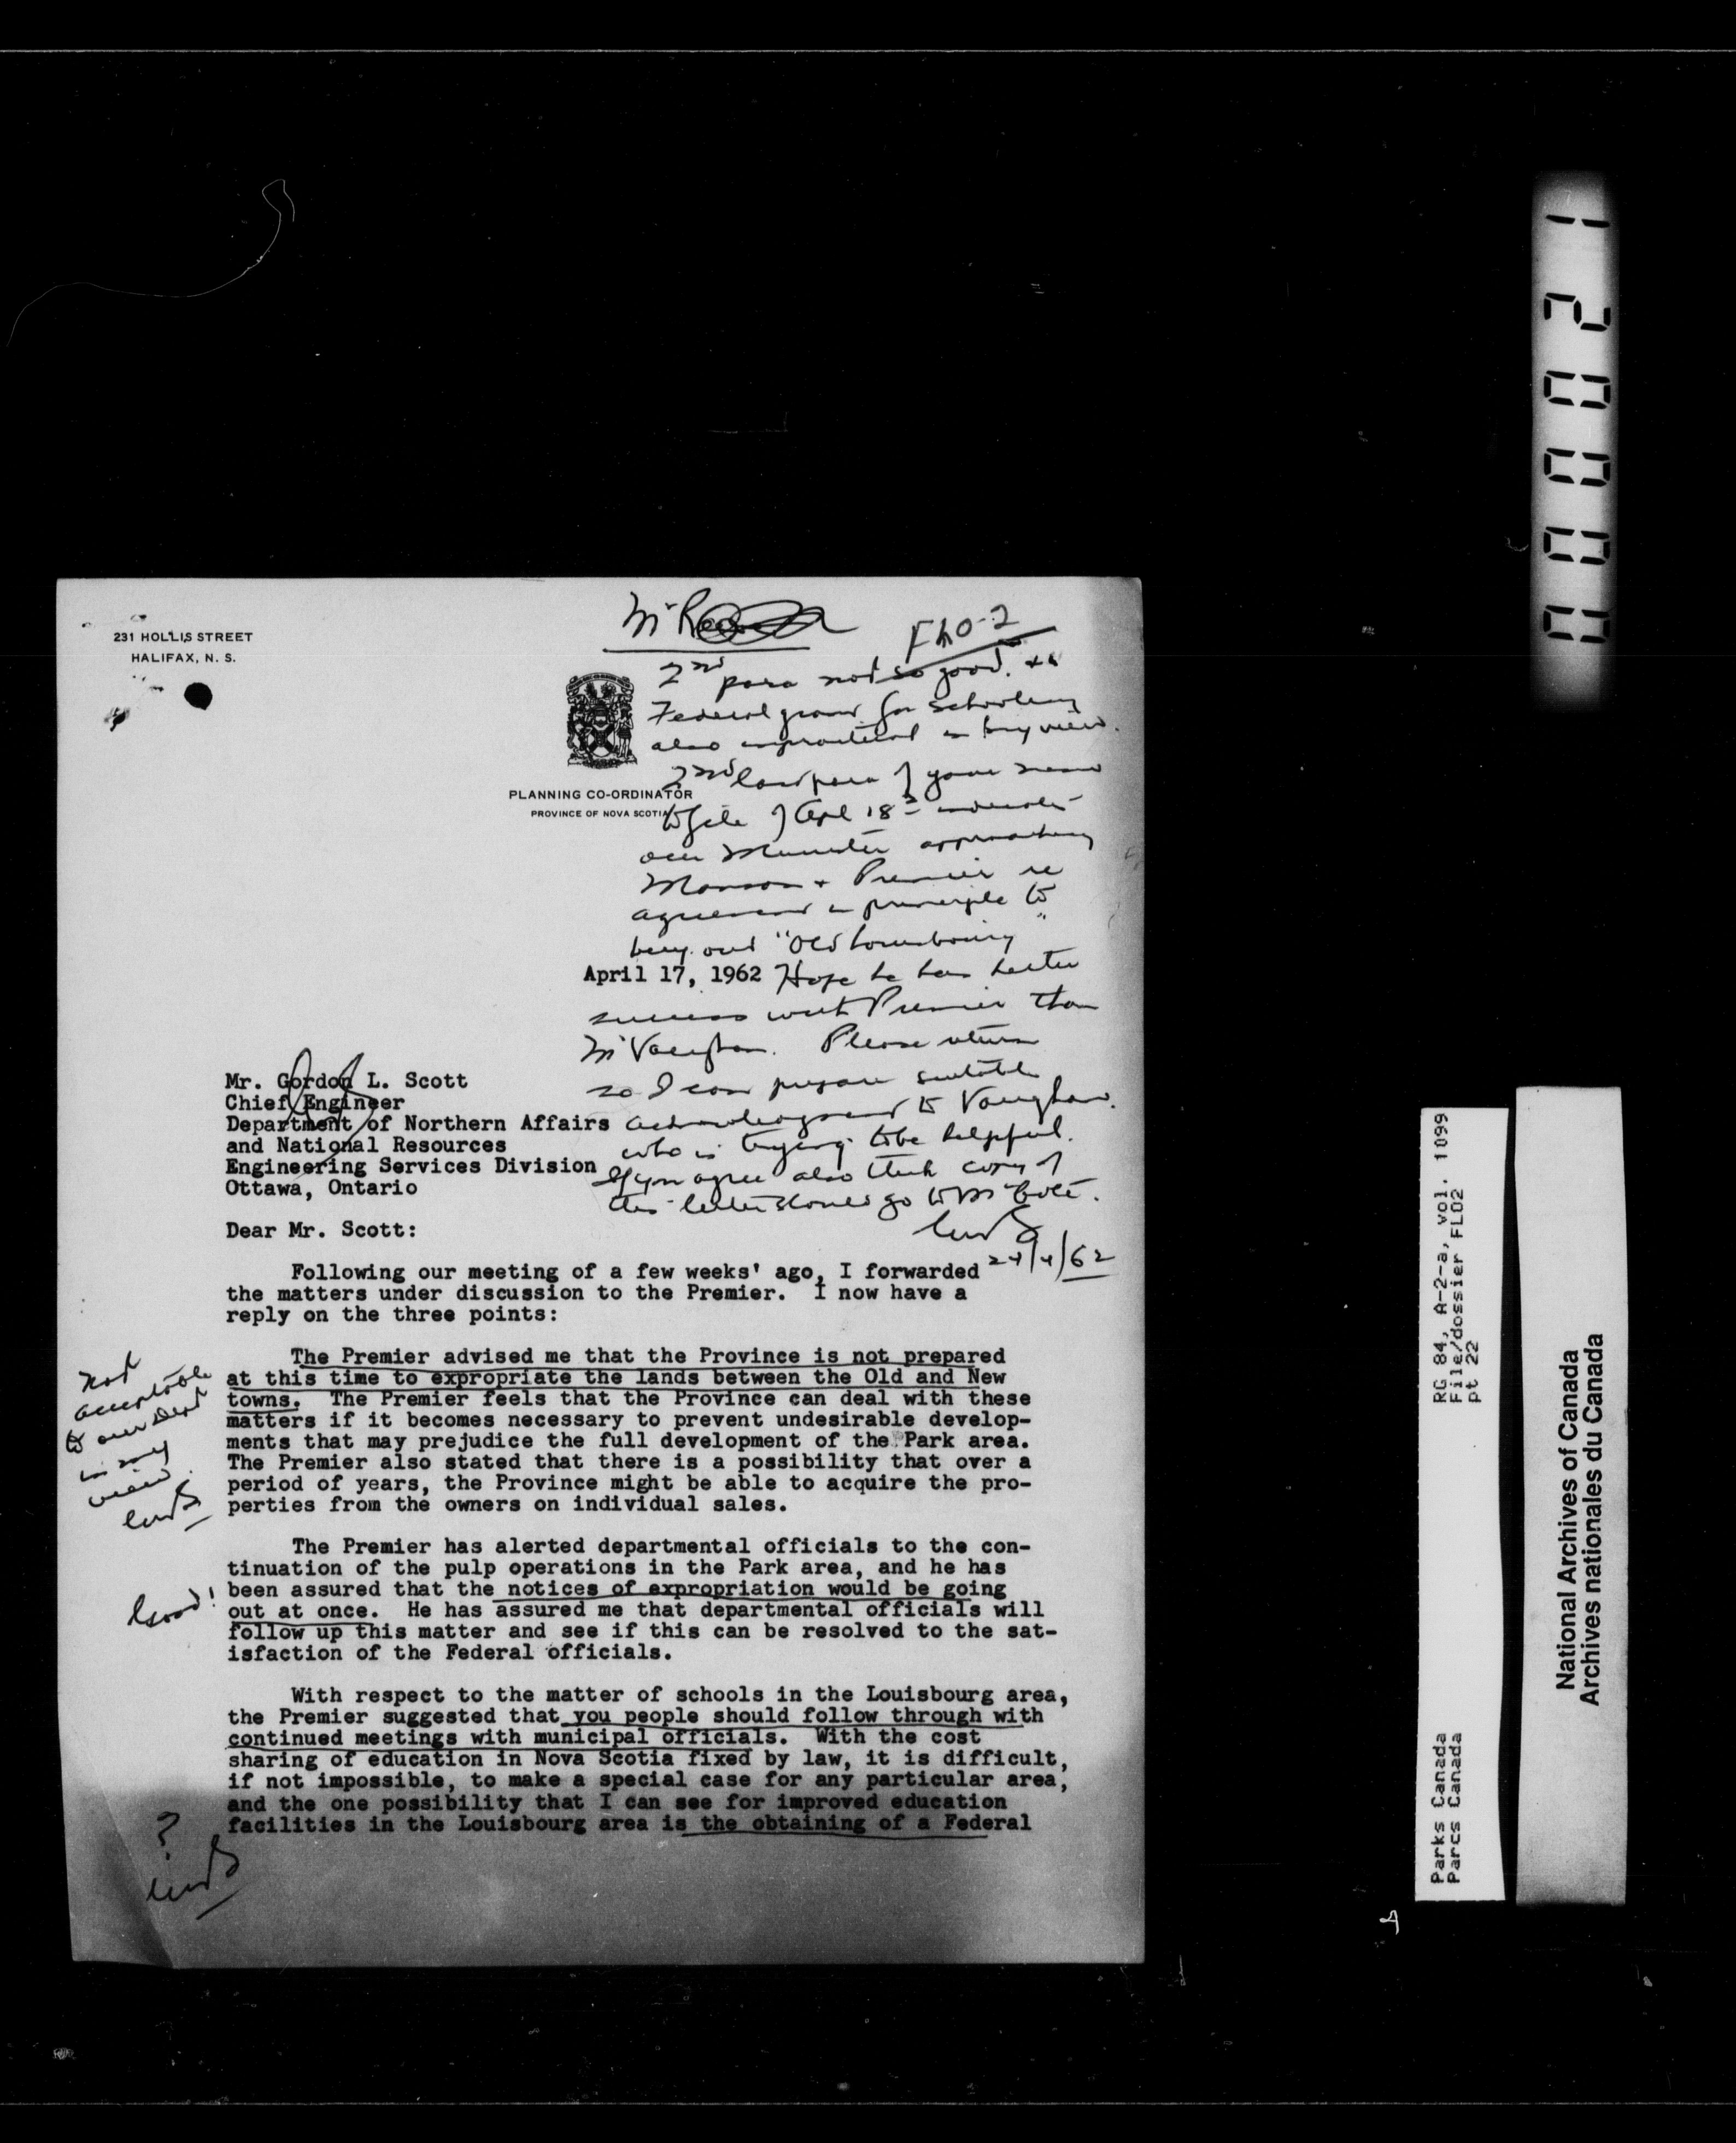 231 HOLLIS STREET
HALIFAX, N. S.
FLO-2
PLANNING CO-ORDINATOR
PROVINCE OF NOVA SCOTIA
2nd para not so good.
Federal grant for schooling
also impractical in my view.
2nd last para of your memo
to file of Apl 18 indicates
our Minister approaching
Manson + Premier re
agreement in principle to
buy out "Old Louisbourg"
Hope he has better
success with Premier than
Mr Vaughan. Please return
so I can prepare suitable
acknowledgement to Vaughan.
who is trying to be helpful.
If you agree also think copy of
this letter should go to Mr Coté.
24/4/62
April 17, 1962
Mr. Gordon L. Scott
Chief Engineer
Department of Northern Affairs
and National Resources
Engineering Services Division
Ottawa, Ontario
Dear Mr. Scott:
Following our meeting of a few weeks' ago, I forwarded
the matters under discussion to the Premier. I now have a
reply on the three points:
The Premier advised me that the Province is not prepared
at this time to expropriate the lands between the Old and New
towns. The Premier feels that the Province can deal with these
matters if it becomes necessary to prevent undesirable develop-
ments that may prejudice the full development of the Park area.
The Premier also stated that there is a possibility that over a
period of years, the Province might be able to acquire the pro-
perties from the owners on individual sales.
not
acceptable
to our Dept
in my
view.
The Premier has alerted departmental officials to the con-
tinuation of the pulp operations in the Park area, and he has
been assured that the notices of expropriation would be going
out at once. He has assured me that departmental officials will
follow up this matter and see if this can be resolved to the sat-
isfaction of the Federal officials.
Good!
With respect to the matter of schools in the Louisbourg area,
the Premier suggested that you people should follow through with
continued meetings with municipal officials. With the cost
sharing of education in Nova Scotia fixed by law, it is difficult,
if not impossible, to make a special case for any particular area,
and the one possibility that I can see for improved education
facilities in the Louisbourg area is the obtaining of a Federal
?
000021
RG 84, A-2-a, vol. 1099
File/dossier FLO2
pt 22
Parks Canada
Parcs Canada
National Archives of Canada
Archives nationales du Canada